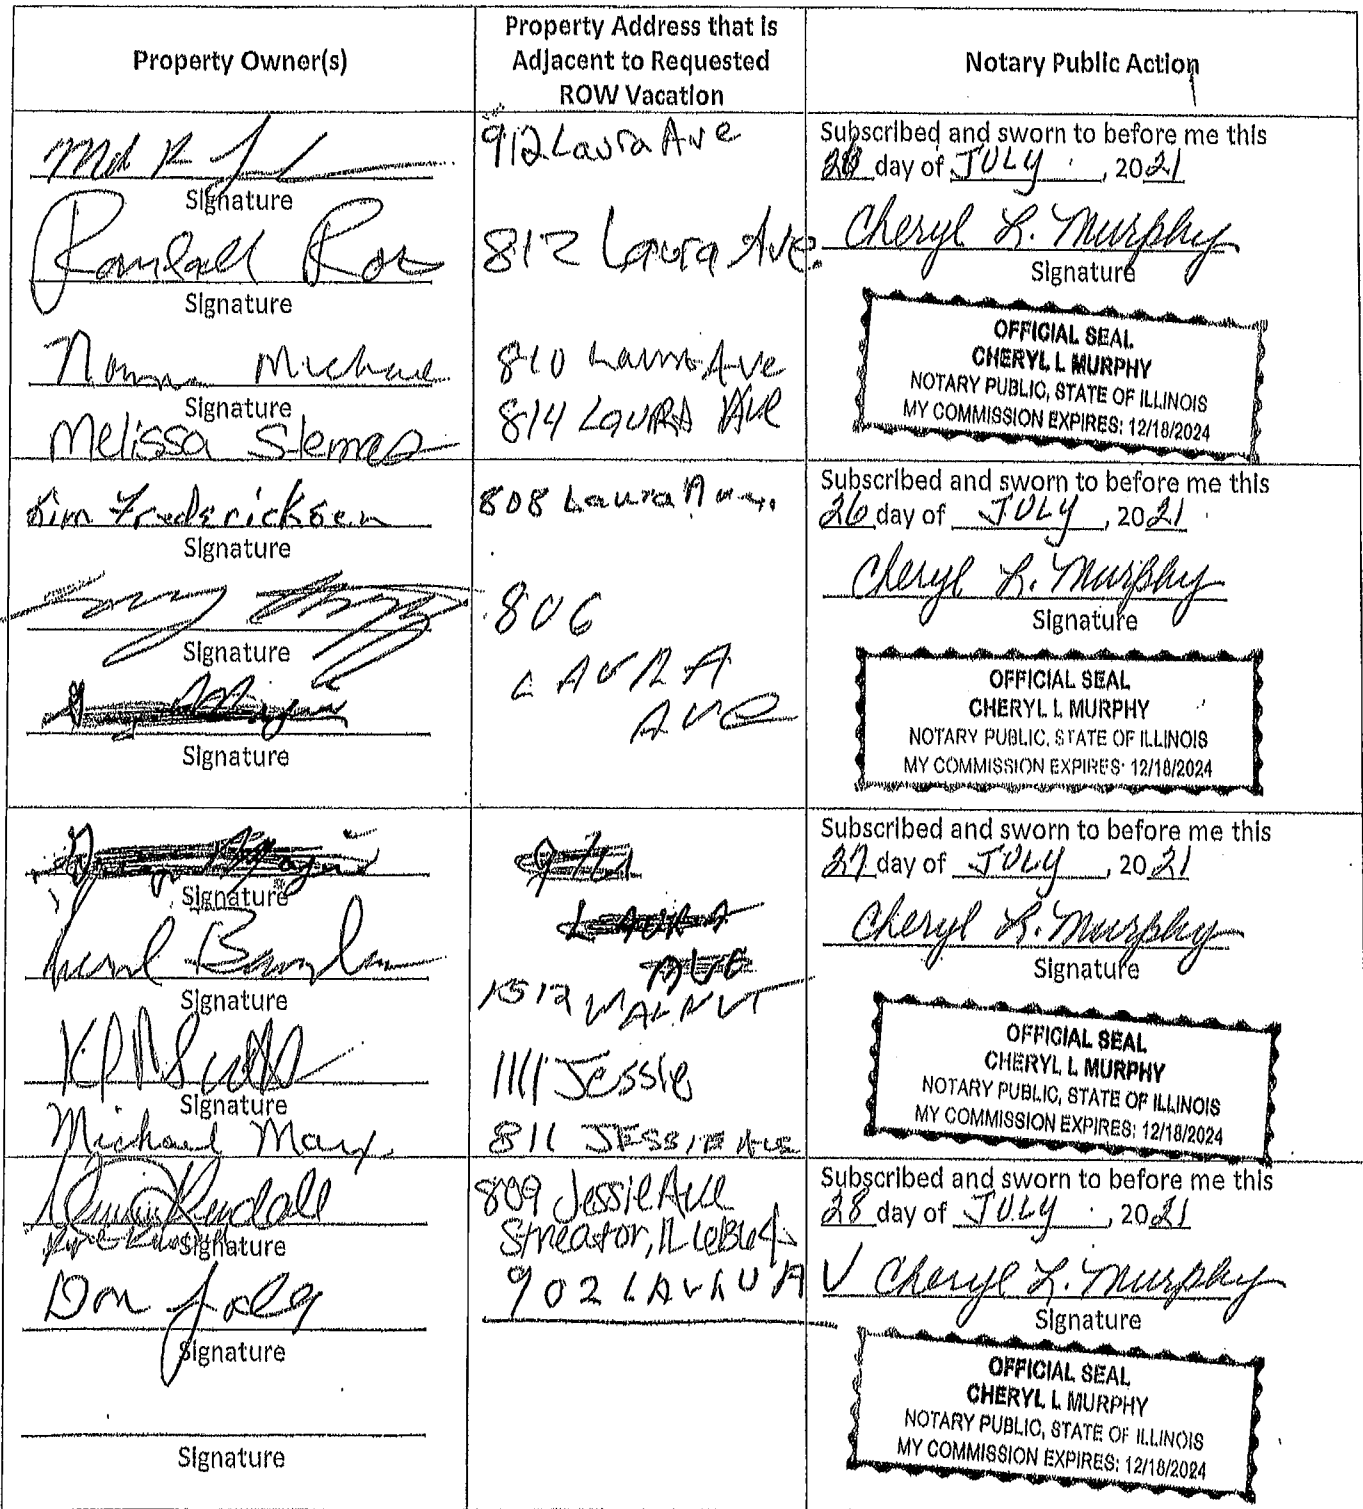 Property Owner(s)
Property Address that is
Adjacent to Requested
ROW Vacation
Notary Public Action
912 Laura Ave
Signature
Randall Ros
812 Laura Ave.
Signature
Norma Michael
810 Laura Ave
Signature
Melissa Slemas
814 LauRA AVe
Subscribed and sworn to before me this
day of JULY, 2021
Cheryl L. Murphy
Signature
OFFICIAL SEAL
CHERYL L MURPHY
NOTARY PUBLIC, STATE OF ILLINOIS
MY COMMISSION EXPIRES: 12/18/2024
Kim Fredericksen
808 Laura Ave.
Signature
806
LAURA
AVE
Signature
Signature
Subscribed and sworn to before me this
26 day of JULY, 2021
Cheryl L. Murphy
Signature
OFFICIAL SEAL
CHERYL L MURPHY
NOTARY PUBLIC, STATE OF ILLINOIS
MY COMMISSION EXPIRES: 12/18/2024
LAURA
AVE
Signature
1512 WALNUT
Signature
1111 Jessie
Signature
Michael Marx
811 JESSIE AVE
Subscribed and sworn to before me this
27 day of JULY, 2021
Cheryl L. Murphy
Signature
OFFICIAL SEAL
CHERYL L MURPHY
NOTARY PUBLIC, STATE OF ILLINOIS
MY COMMISSION EXPIRES: 12/18/2024
Kendall
809 Jessie Ave
Streator, IL
Signature
Don
902
Signature
Signature
Subscribed and sworn to before me this
28 day of JULY, 2021
Cheryl L. Murphy
Signature
OFFICIAL SEAL
CHERYL L MURPHY
NOTARY PUBLIC, STATE OF ILLINOIS
MY COMMISSION EXPIRES: 12/18/2024